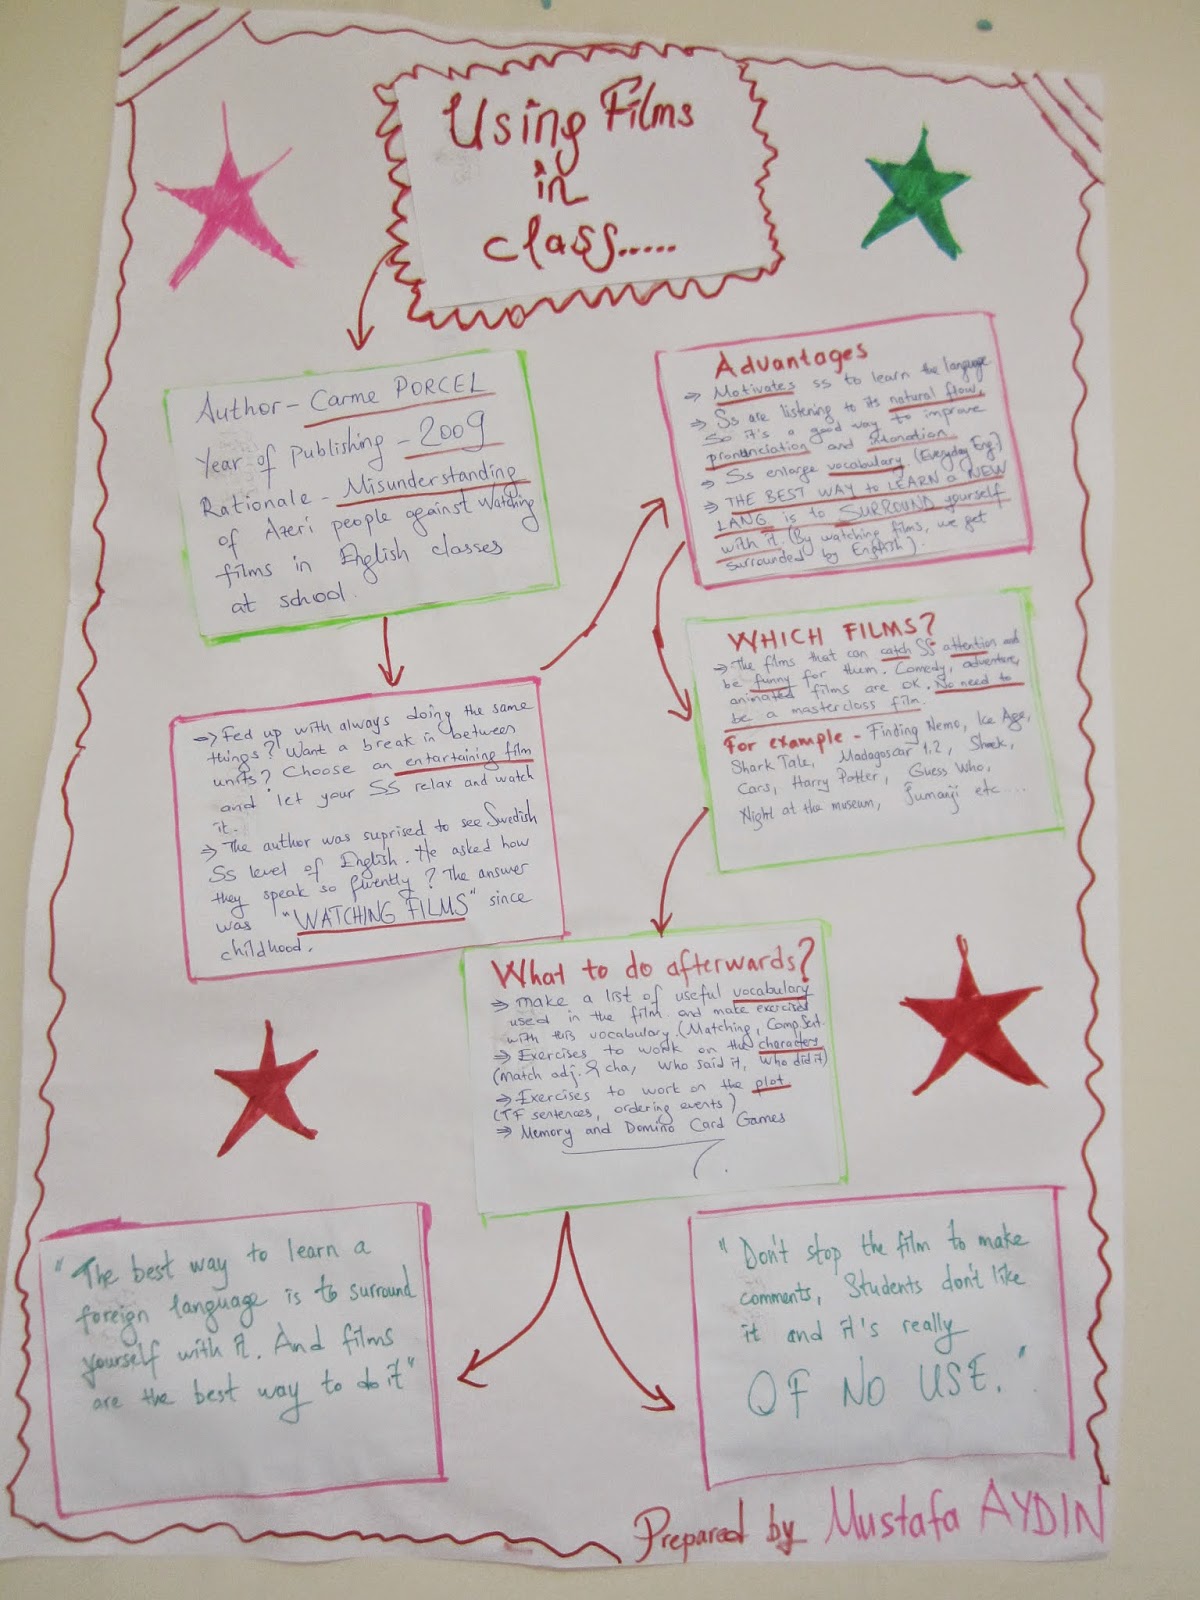 Using Films
in
class.....
Author - Carme PORCEL
Year of Publishing - 2009
Rationale - Misunderstanding
of Azeri people against watching
films in English classes
at school.
⇒ Fed up with always doing the same
things? Want a break in between
units? Choose an entartaining film
and let your SS relax and watch
it.
⇒ The author was suprised to see Swedish
SS level of English. He asked how
they speak so fluently? The answer
was "WATCHING FILMS" since
childhood.
Advantages
⇒ Motivates ss to learn the language
⇒ Ss are listening to its natural flow,
so it's a good way to improve
pronunciation and intonation
⇒ Ss enlarge vocabulary. (Everyday Eng.)
⇒ THE BEST WAY to LEARN a NEW
LANG. is to SURROUND yourself
with it. (By watching films, we get
surrounded by English).
WHICH FILMS?
⇒ The films that can catch SS attention and
be funny for them. Comedy, adventure,
animated films are OK. No need to
be a masterclass film.
For example - Finding Nemo, Ice Age,
Shark Tale, Madagascar 1.2, Shrek,
Cars, Harry Potter, Guess Who,
Night at the museum, Jumanji etc....
What to do afterwards?
⇒ make a list of useful vocabulary
used in the film and make exercises
with this vocabulary (Matching, Comp. Sent.
⇒ Exercises to work on the characters
(Match adj. & cha, who said it, who did it)
⇒ Exercises to work on the plot
(TF sentences, ordering events)
⇒ Memory and Domino Card Games
"The best way to learn a
foreign language is to surround
yourself with it. And films
are the best way to do it"
"Don't stop the film to make
comments, Students don't like
it and it's really
OF NO USE."
Prepared by Mustafa AYDIN